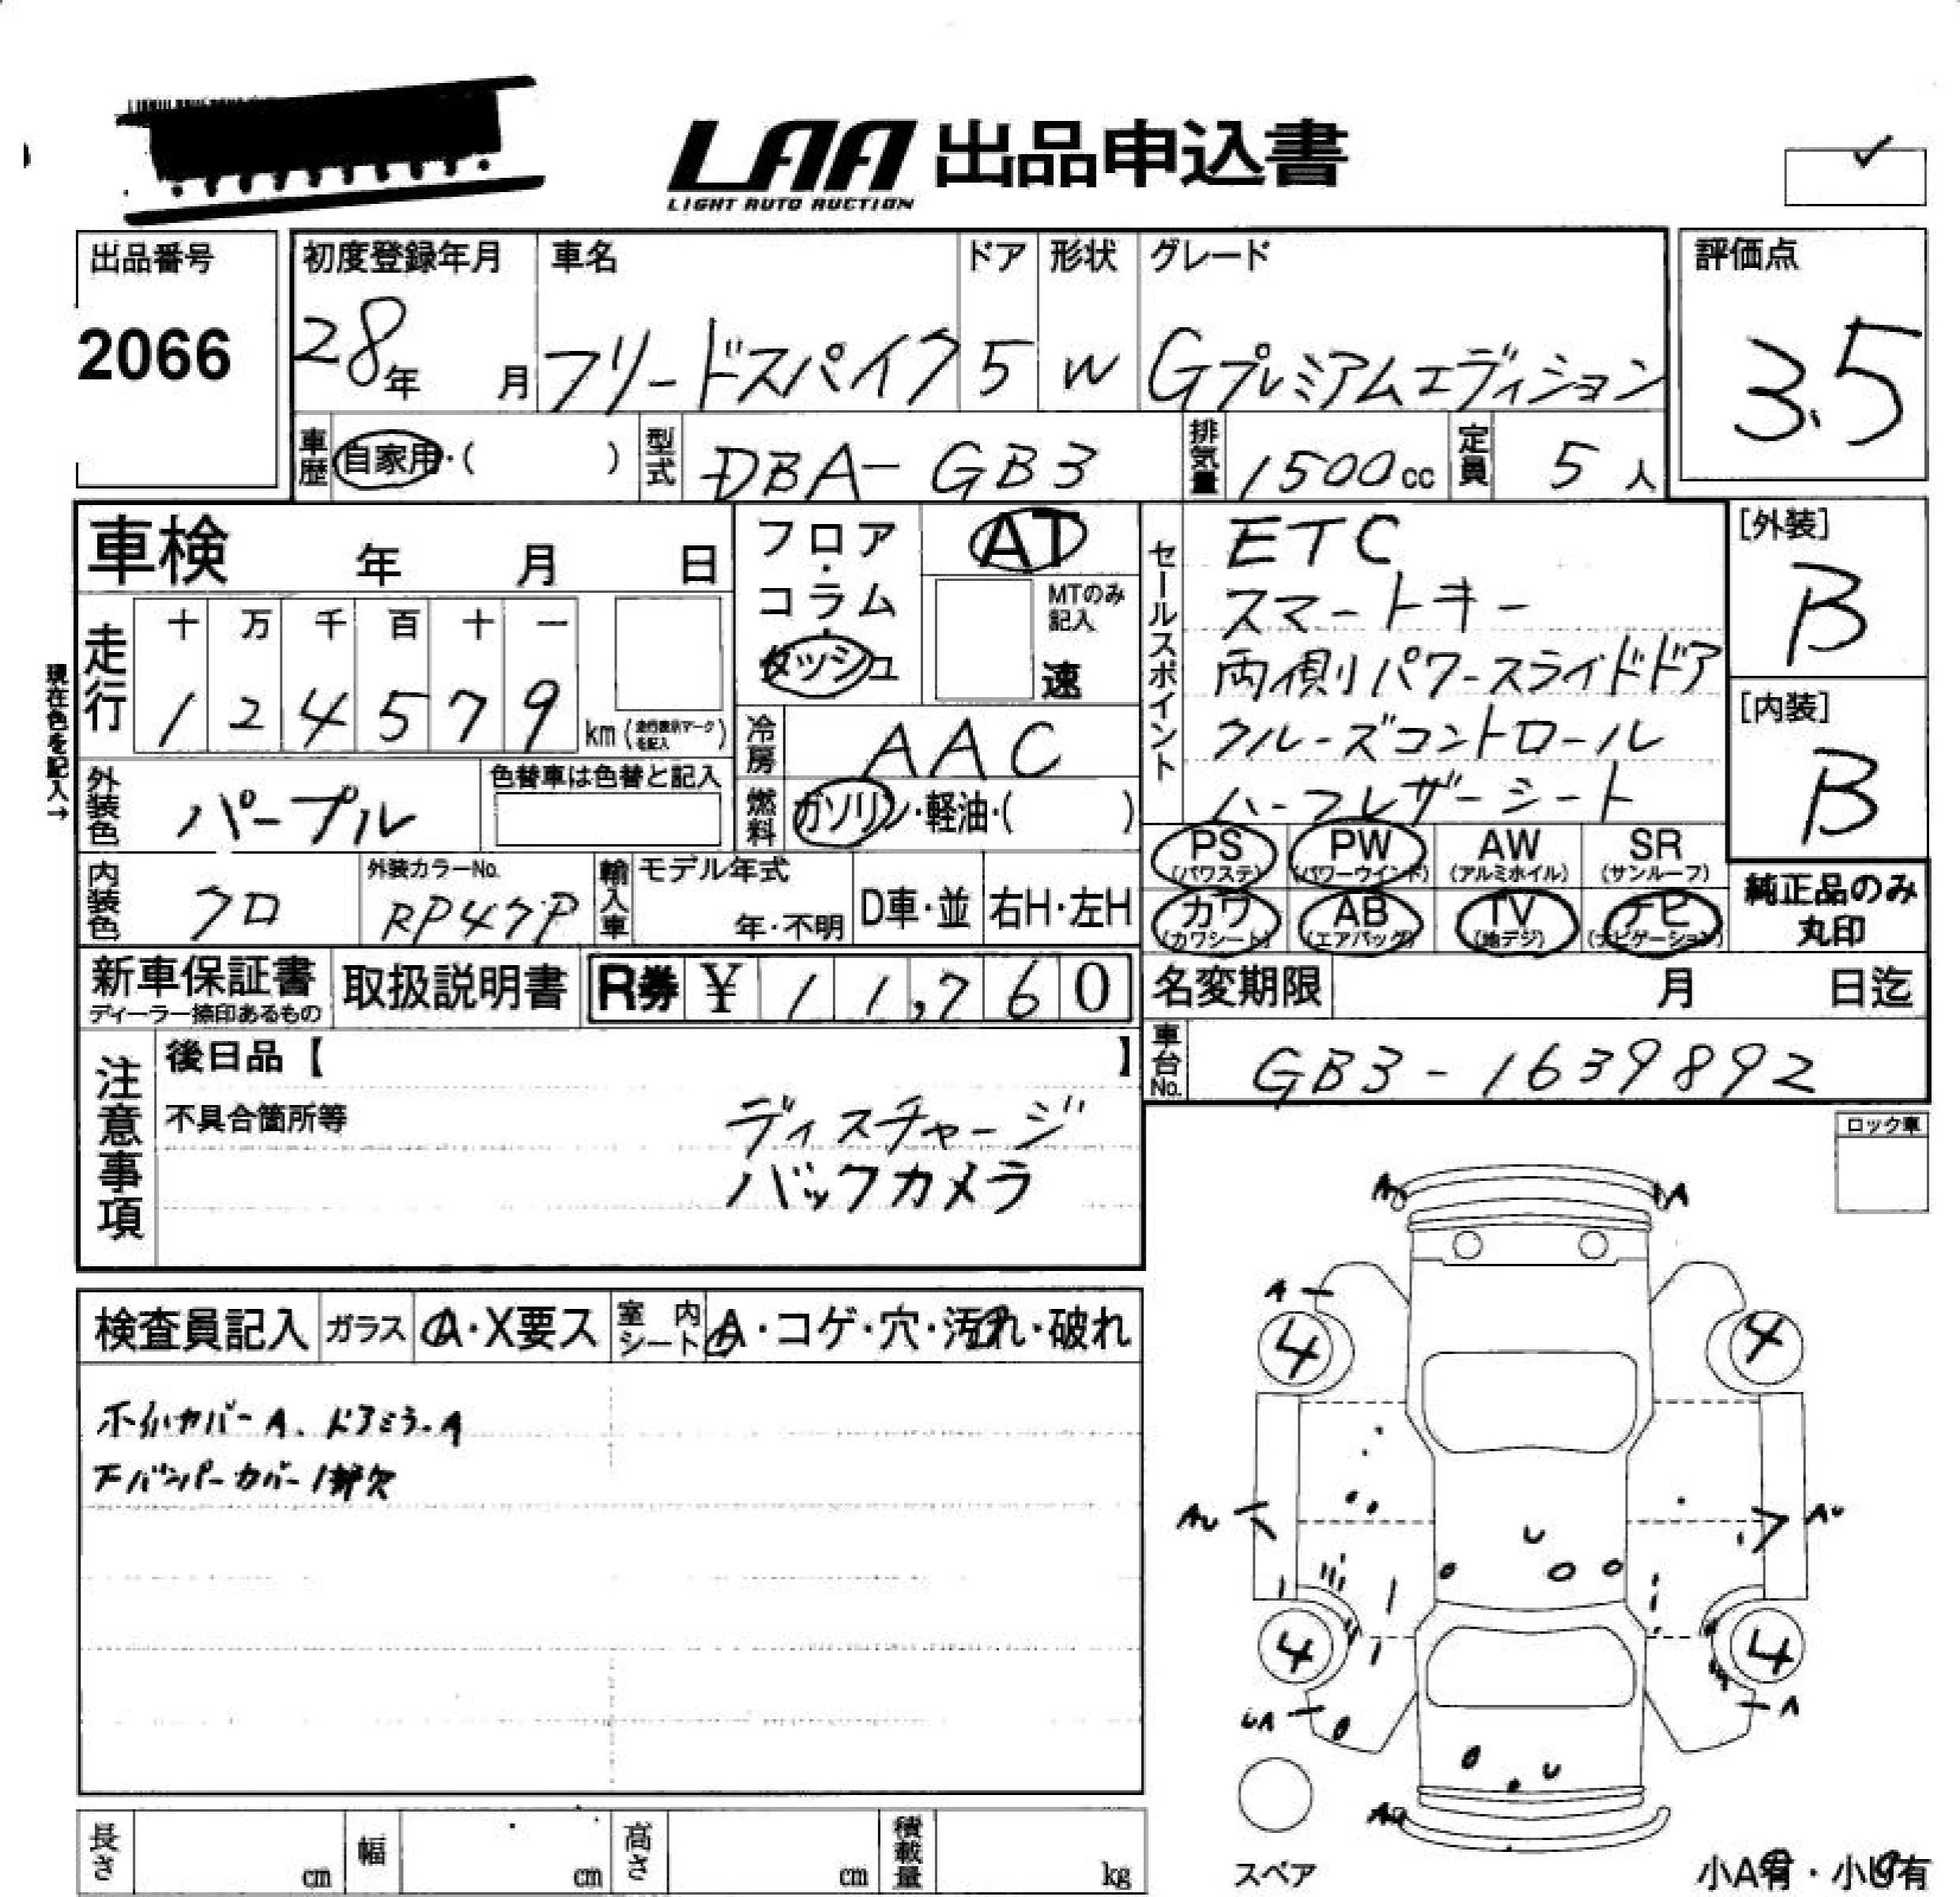 LAA 出品申込書
LIGHT AUTO AUCTION
出品番号
2066
初度登録年月
28年 月
車名
フリードスパイク
ドア
5
形状
W
グレード
Gプレミアムエディション
評価点
3.5
車歴 自家用・( )
型式 DBA-GB3
排気量 1500cc
定員 5人
車検 年 月 日
フロア・コラム・ダッシュ
AT
MTのみ記入
速
セールスポイント
ETC
スマートキー
両側パワースライドドア
クルーズコントロール
ハーフレザーシート
[外装]
B
[内装]
B
現在色を記入→
走行
十 万 千 百 十 一
1 2 4 5 7 9
km(走行表示マークを記入)
冷房 AAC
外装色 パープル
色替車は色替と記入
燃料 ガソリン・軽油・( )
PS (パワステ)
PW (パワーウインド)
AW (アルミホイル)
SR (サンルーフ)
カワ (カワシート)
AB (エアバッグ)
TV (地デジ)
ナビ (ナビゲーション)
純正品のみ
丸印
内装色 クロ
外装カラーNo.
RP47P
輸入車
モデル年式
年・不明
D車・並
右H・左H
新車保証書
ディーラー捺印あるもの
取扱説明書
R券 ¥ 11,760
名変期限 月 日迄
車台No. GB3-1639892
注意事項
後日品【 】
不具合箇所等
ディスチャージ
バックカメラ
ロック車
検査員記入
ガラス
A・X要ス
室内シート
A・コゲ・穴・汚れ・破れ
ホイルカバーA、ドアミラーA
下バンパーカバー1部欠
A
A
4
4
AU
AU
U
4
4
UA
A
U
スペア
小A有・小U有
長さ cm
幅 cm
高さ cm
積載量 kg